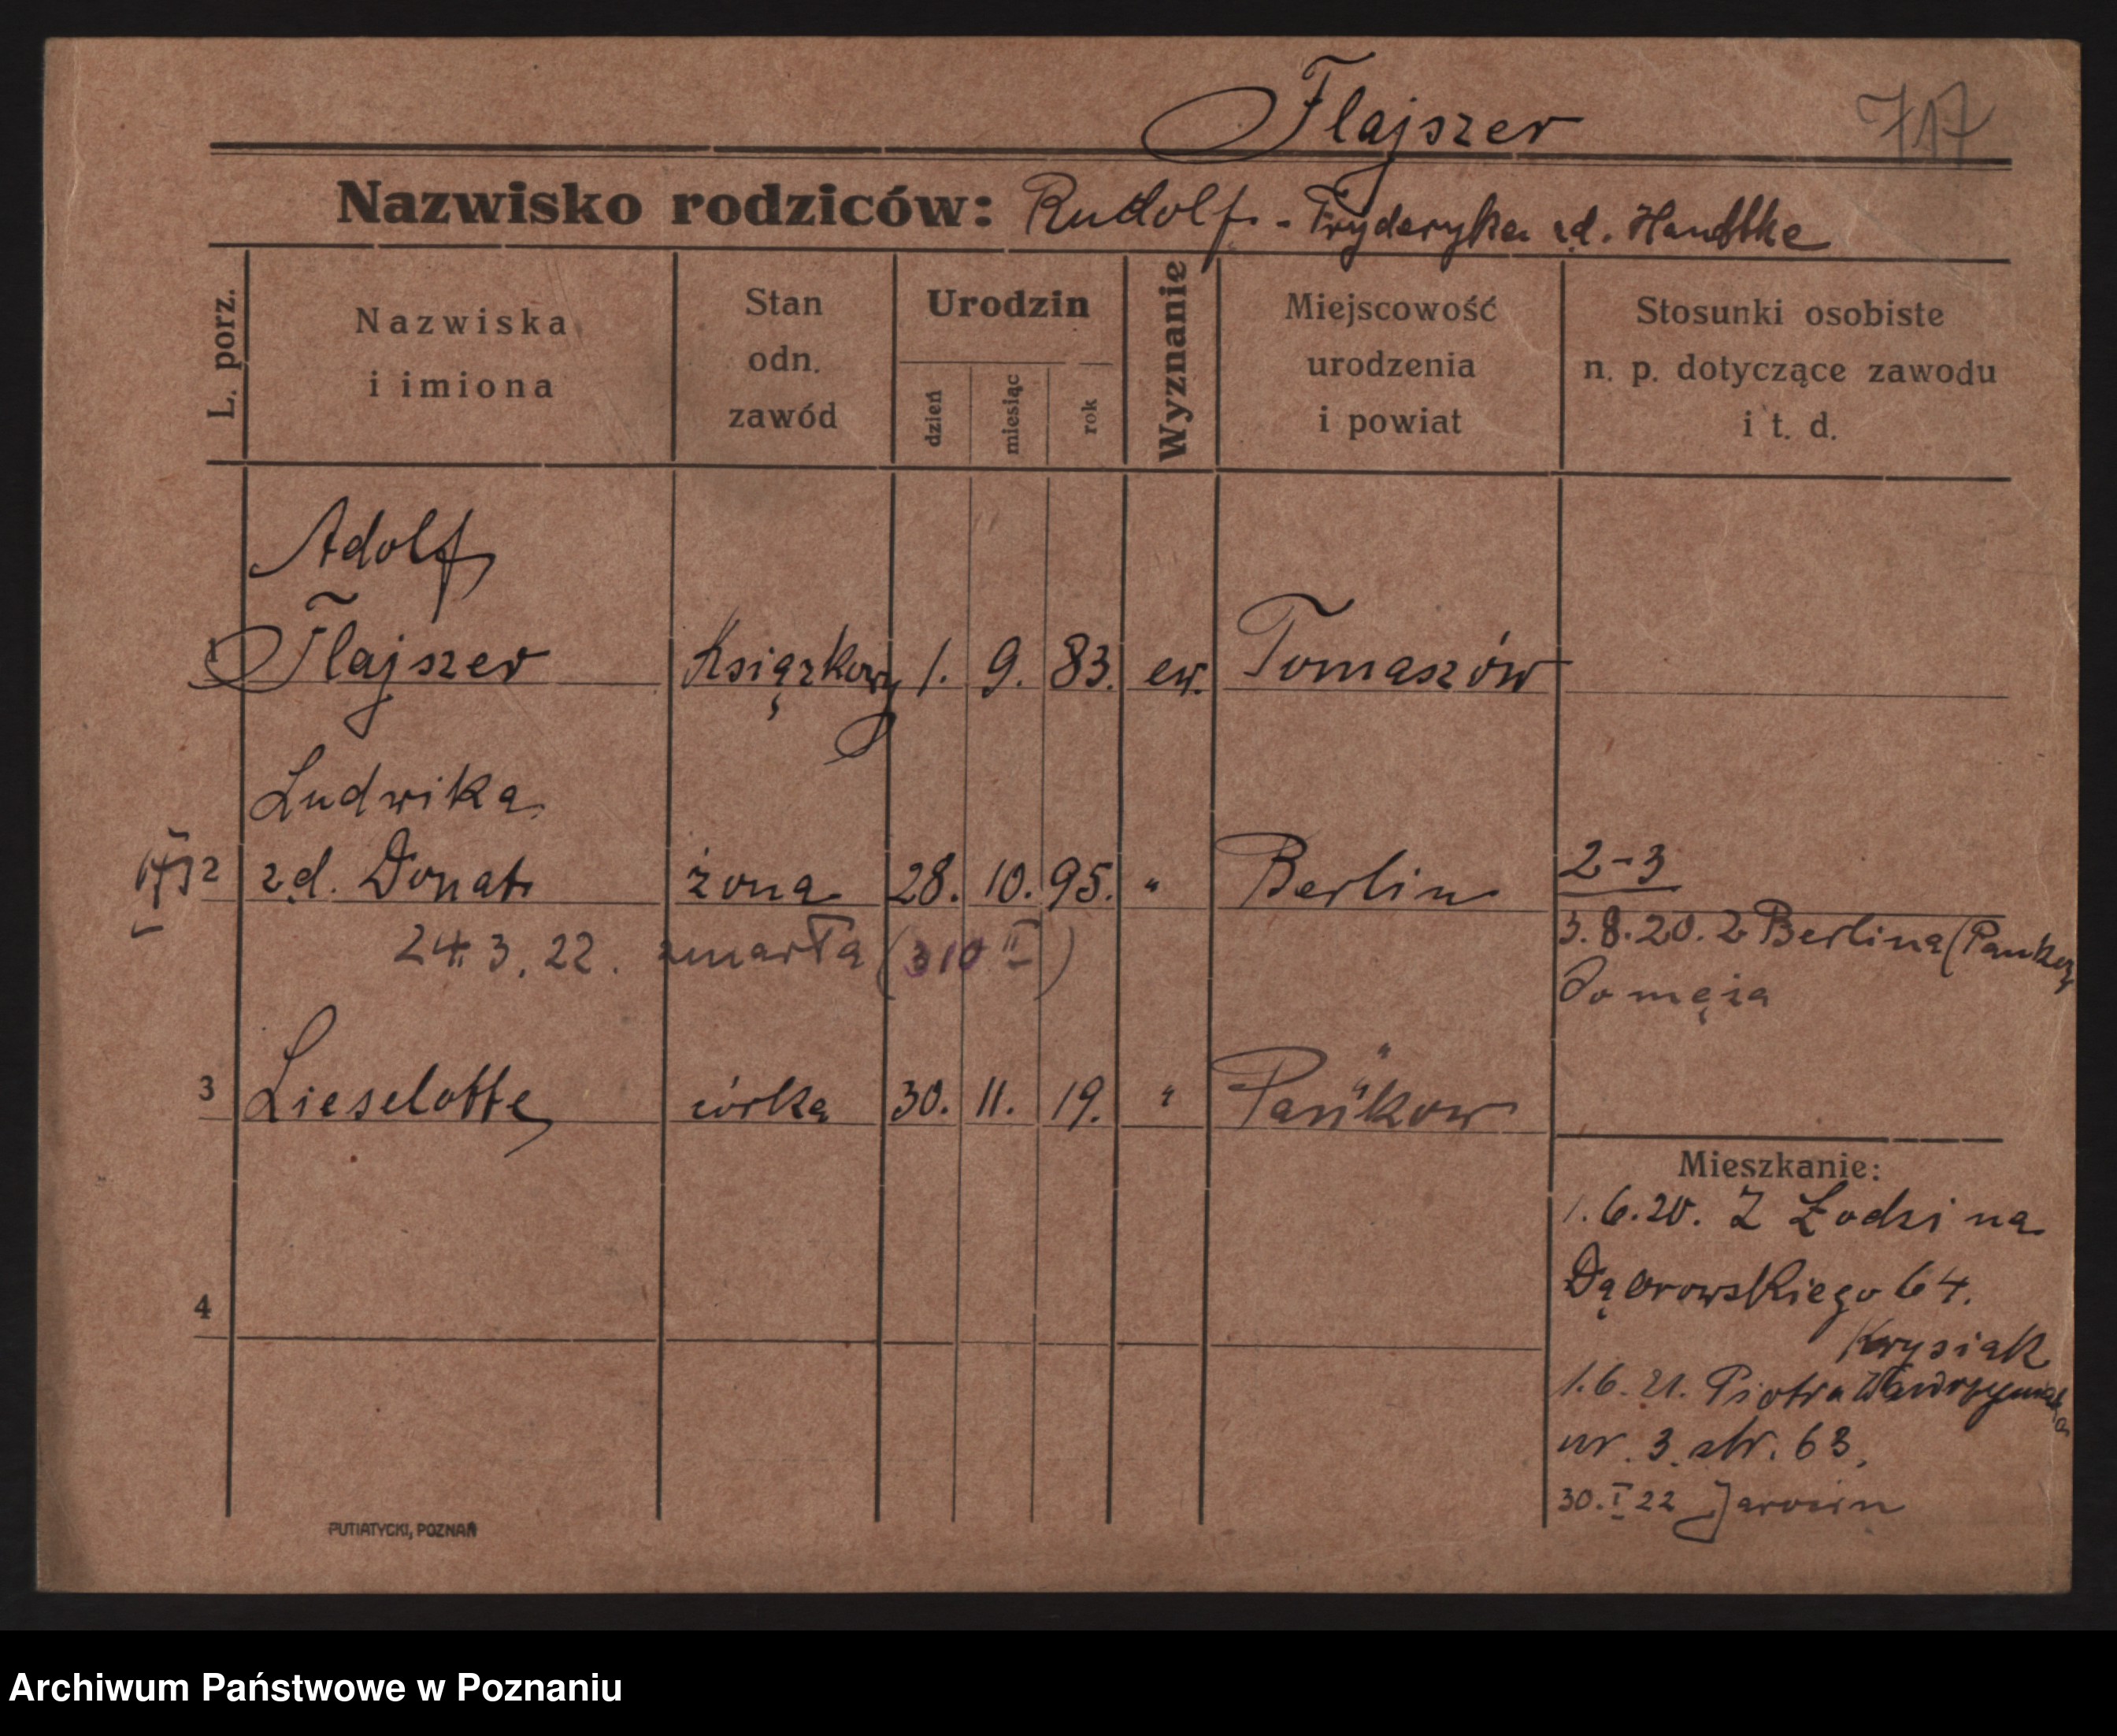 Flajszer 717
Nazwisko rodziców: Rudolf - Fryderyka zd. Handtke
L. porz.
Nazwiska
i imiona
Stan
odn.
zawód
Urodzin
dzień
miesiąc
rok
Wyznanie
Miejscowość
urodzenia
i powiat
Stosunki osobiste
n. p. dotyczące zawodu
i t. d.
Adolf
1 Flajszer Książkowy 1. 9. 83. ew. Tomaszów
Ludwika
2 zd. Donat żona 28. 10. 95. " Berlin
2-3
3.8.20. z Berlina (Pankow
do męża
24.3.22. zmarła (310 II)
3 Lieselotte córka 30. 11. 19. " Pankow
Mieszkanie:
1.6.20. Z Łodzi na
Dąbrowskiego 64.
Krysiak
1.6.21. Piotra Wawrzyniaka
nr. 3. str. 63.
30.I 22 Jarocin
4
PUTIATYCKI, POZNAŃ
Archiwum Państwowe w Poznaniu